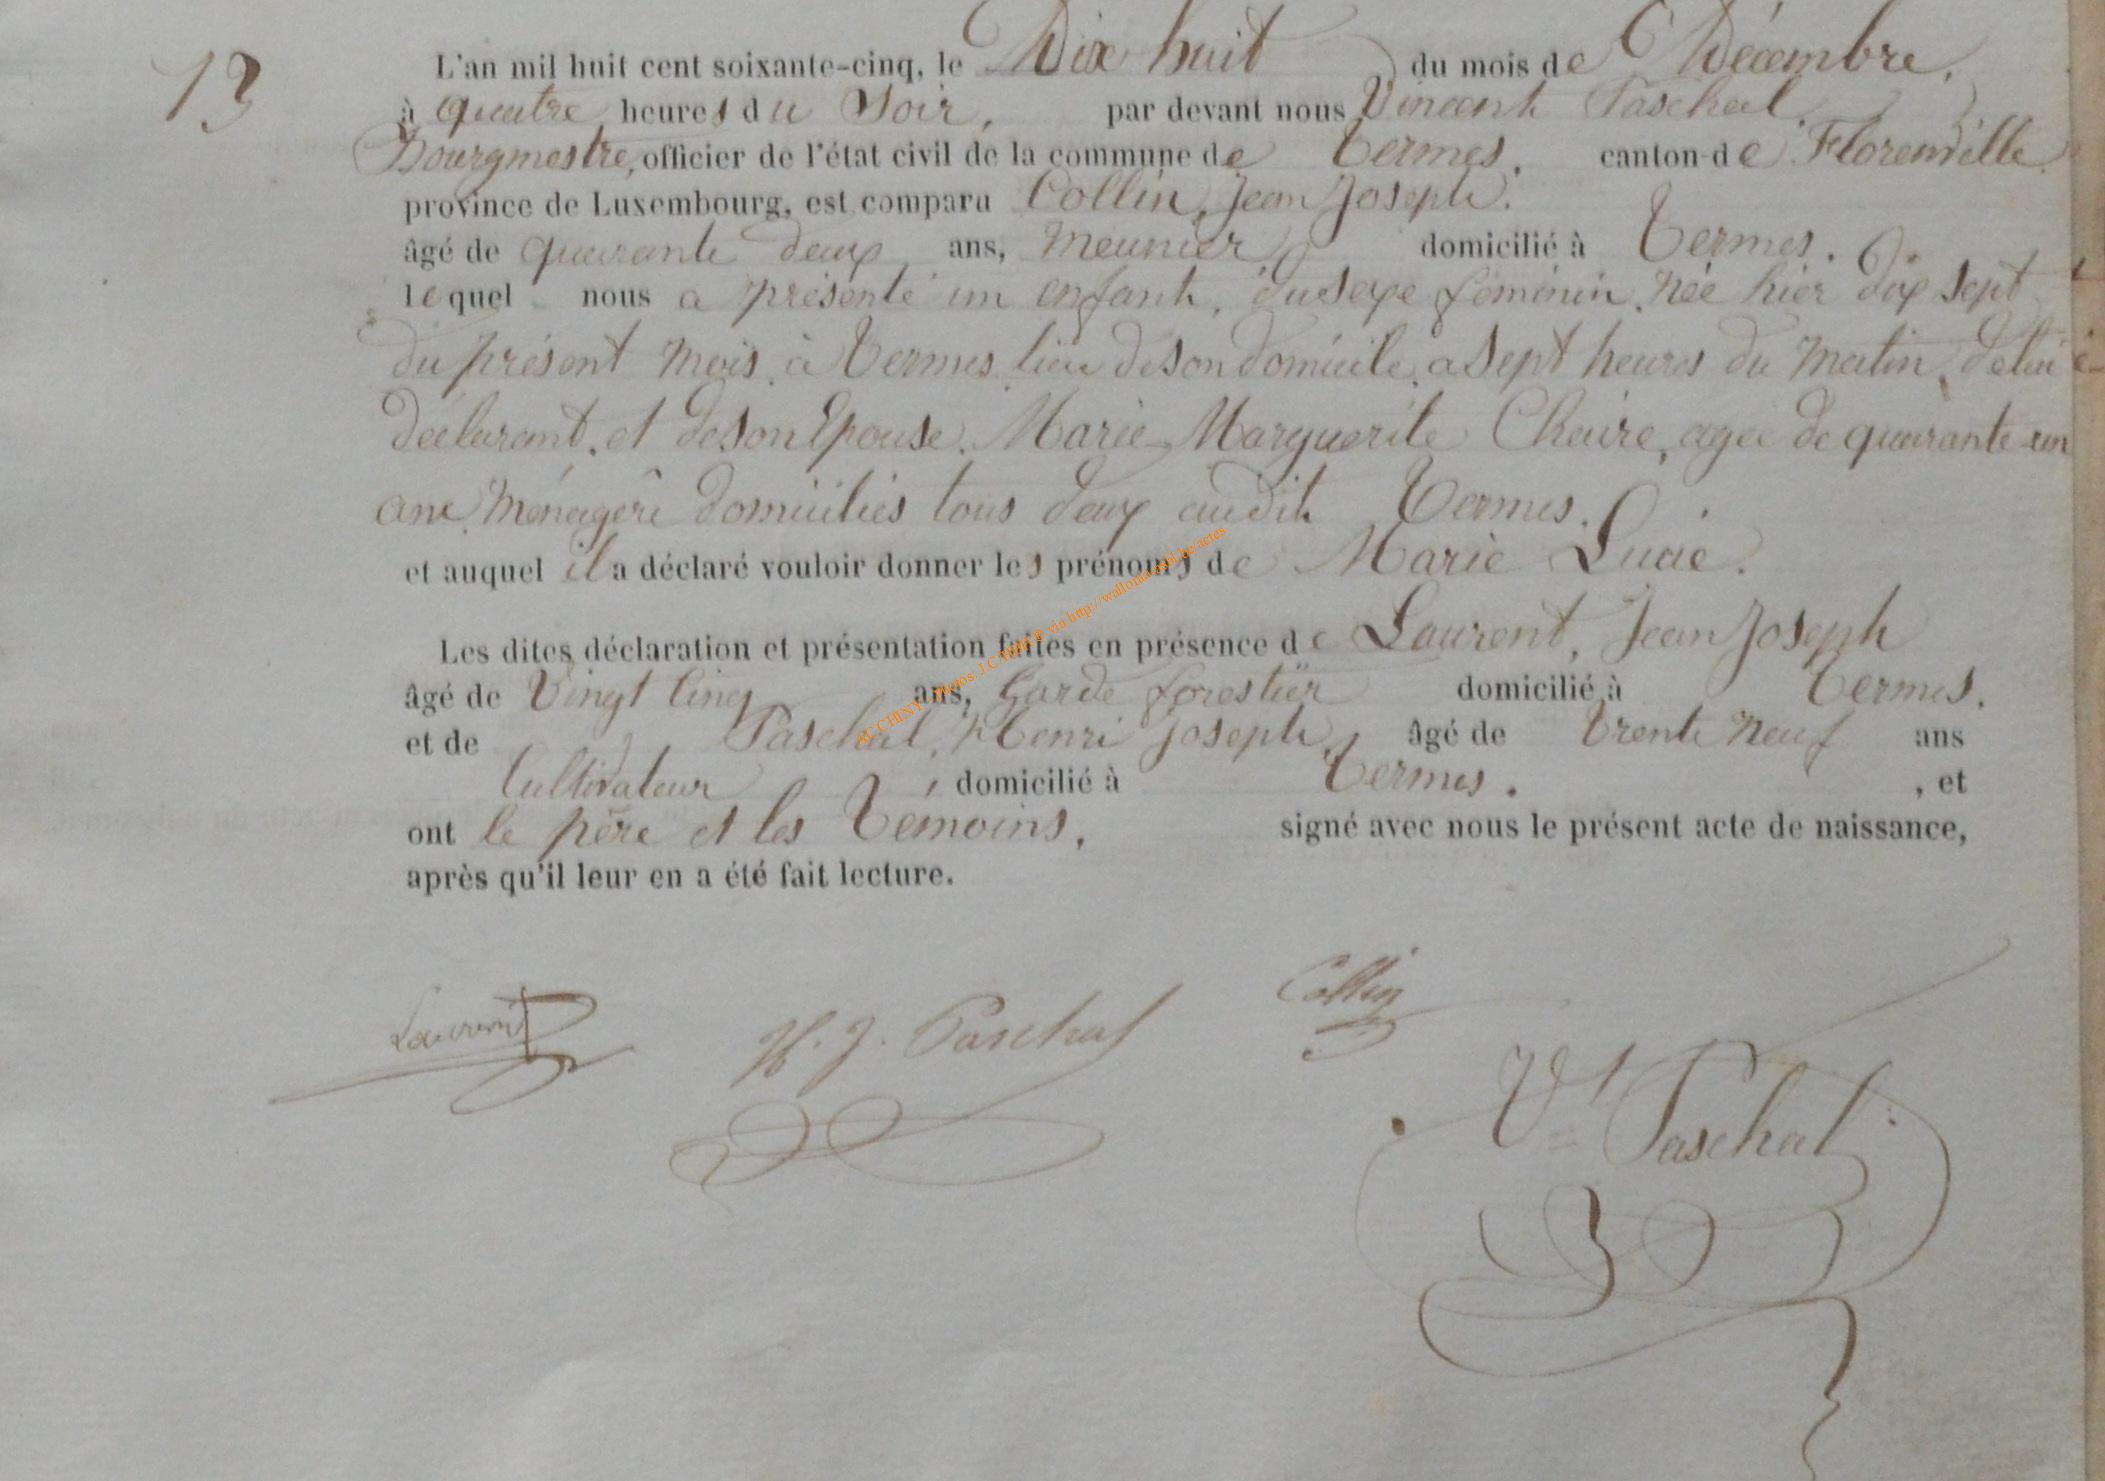 13
L'an mil huit cent soixante-cinq, le Dix huit du mois de Décembre.
à quatre heures du Soir, par devant nous Vincent Paschal,
Bourgmestre, officier de l'état civil de la commune de Termes, canton de Florenville
province de Luxembourg, est comparu Collin, Jean Joseph.
âgé de quarante deux ans, Meunier domicilié à Termes.
lequel nous a présenté un enfant, du sexe féminin, née hier dix sept
du présent mois, à Termes lieu de son domicile, a sept heures du matin, de lui
déclarant, et de son Epouse, Marie Marguerite Chaire, agée de quarante un
ans, Ménagère domiciliés tous deux audit Termes.
et auquel il a déclaré vouloir donner les prénoms de Marie Lucie.
Les dites déclaration et présentation faites en présence de Laurent, Jean Joseph
âgé de Vingt Cinq ans, Garde forestier domicilié à Termes.
et de Paschal, Henri Joseph, âgé de trente neuf ans
Cultivateur, domicilié à Termes. , et
ont le père et les témoins, signé avec nous le présent acte de naissance,
après qu'il leur en a été fait lecture.
AC CHINY - Photos J.CARM © via http://wallonia-asbl.be/actes
Collin
Laurent H. J. Paschal
Vt Paschal